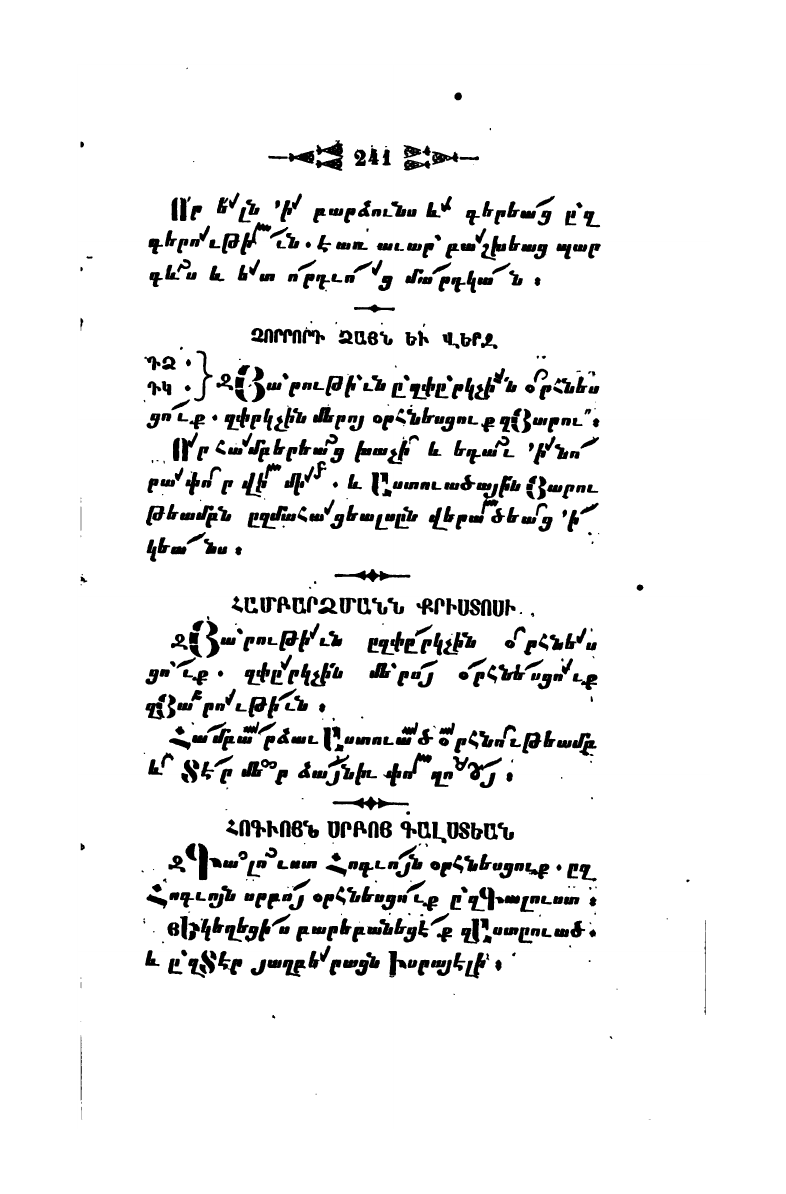 241
Որ ելն 'ի բարձունս և գերեաց ըզ
գերութիւն. Է առ աւար՝ բաշխեաց պար
գևս և ետ որդւոց մարդկան։
ՉՈՐՐՈՐԴ ՁԱՅՆ ԵՒ ՎԵՐՋ
ԴՁ.
ԴԿ.
ԶՅա՛րութի՛ւն ը՛զփը՛րկչին օրհնես
ցուք. զփրկչին մերոյ օրհնեսցուք զՅարու՛՛։
Որ Համբերեաց խաչի և եդաւ 'ի նո
րափոր վիմի. և Աստուածային Յարու
թեամբն ըզմահացեալսըն վերածեաց 'ի
կեանս։
ՀԱՄԲԱՐՁՄԱՆՆ ՔՐԻՍՏՈՍԻ.
ԶՅա՛րութիւն ըզփըրկչին օրհնես
ցո՛ւք. զփըրկչին մե՛րոյ օրհնեսցուք
զՅարութիւն։
Համբարձաւ Աստուած օրհնութեամբ
և Տէր մեր ձայնիւ փողոյ։
ՀՈԳԻՈՅՆ ՍՐԲՈՅ ԳԱԼՍՏԵԱՆ
ԶԳալուստ Հոգւոյն օրհնեսցուք. ըզ
Հոգւոյն սրբոյ օրհնեսցուք ը՛զԳալուստ։
Յեկեղեցիս բարեբանեցէք զԱստըուած.
և ը՛զՏէր յաղբերացն Իսրայէլի։